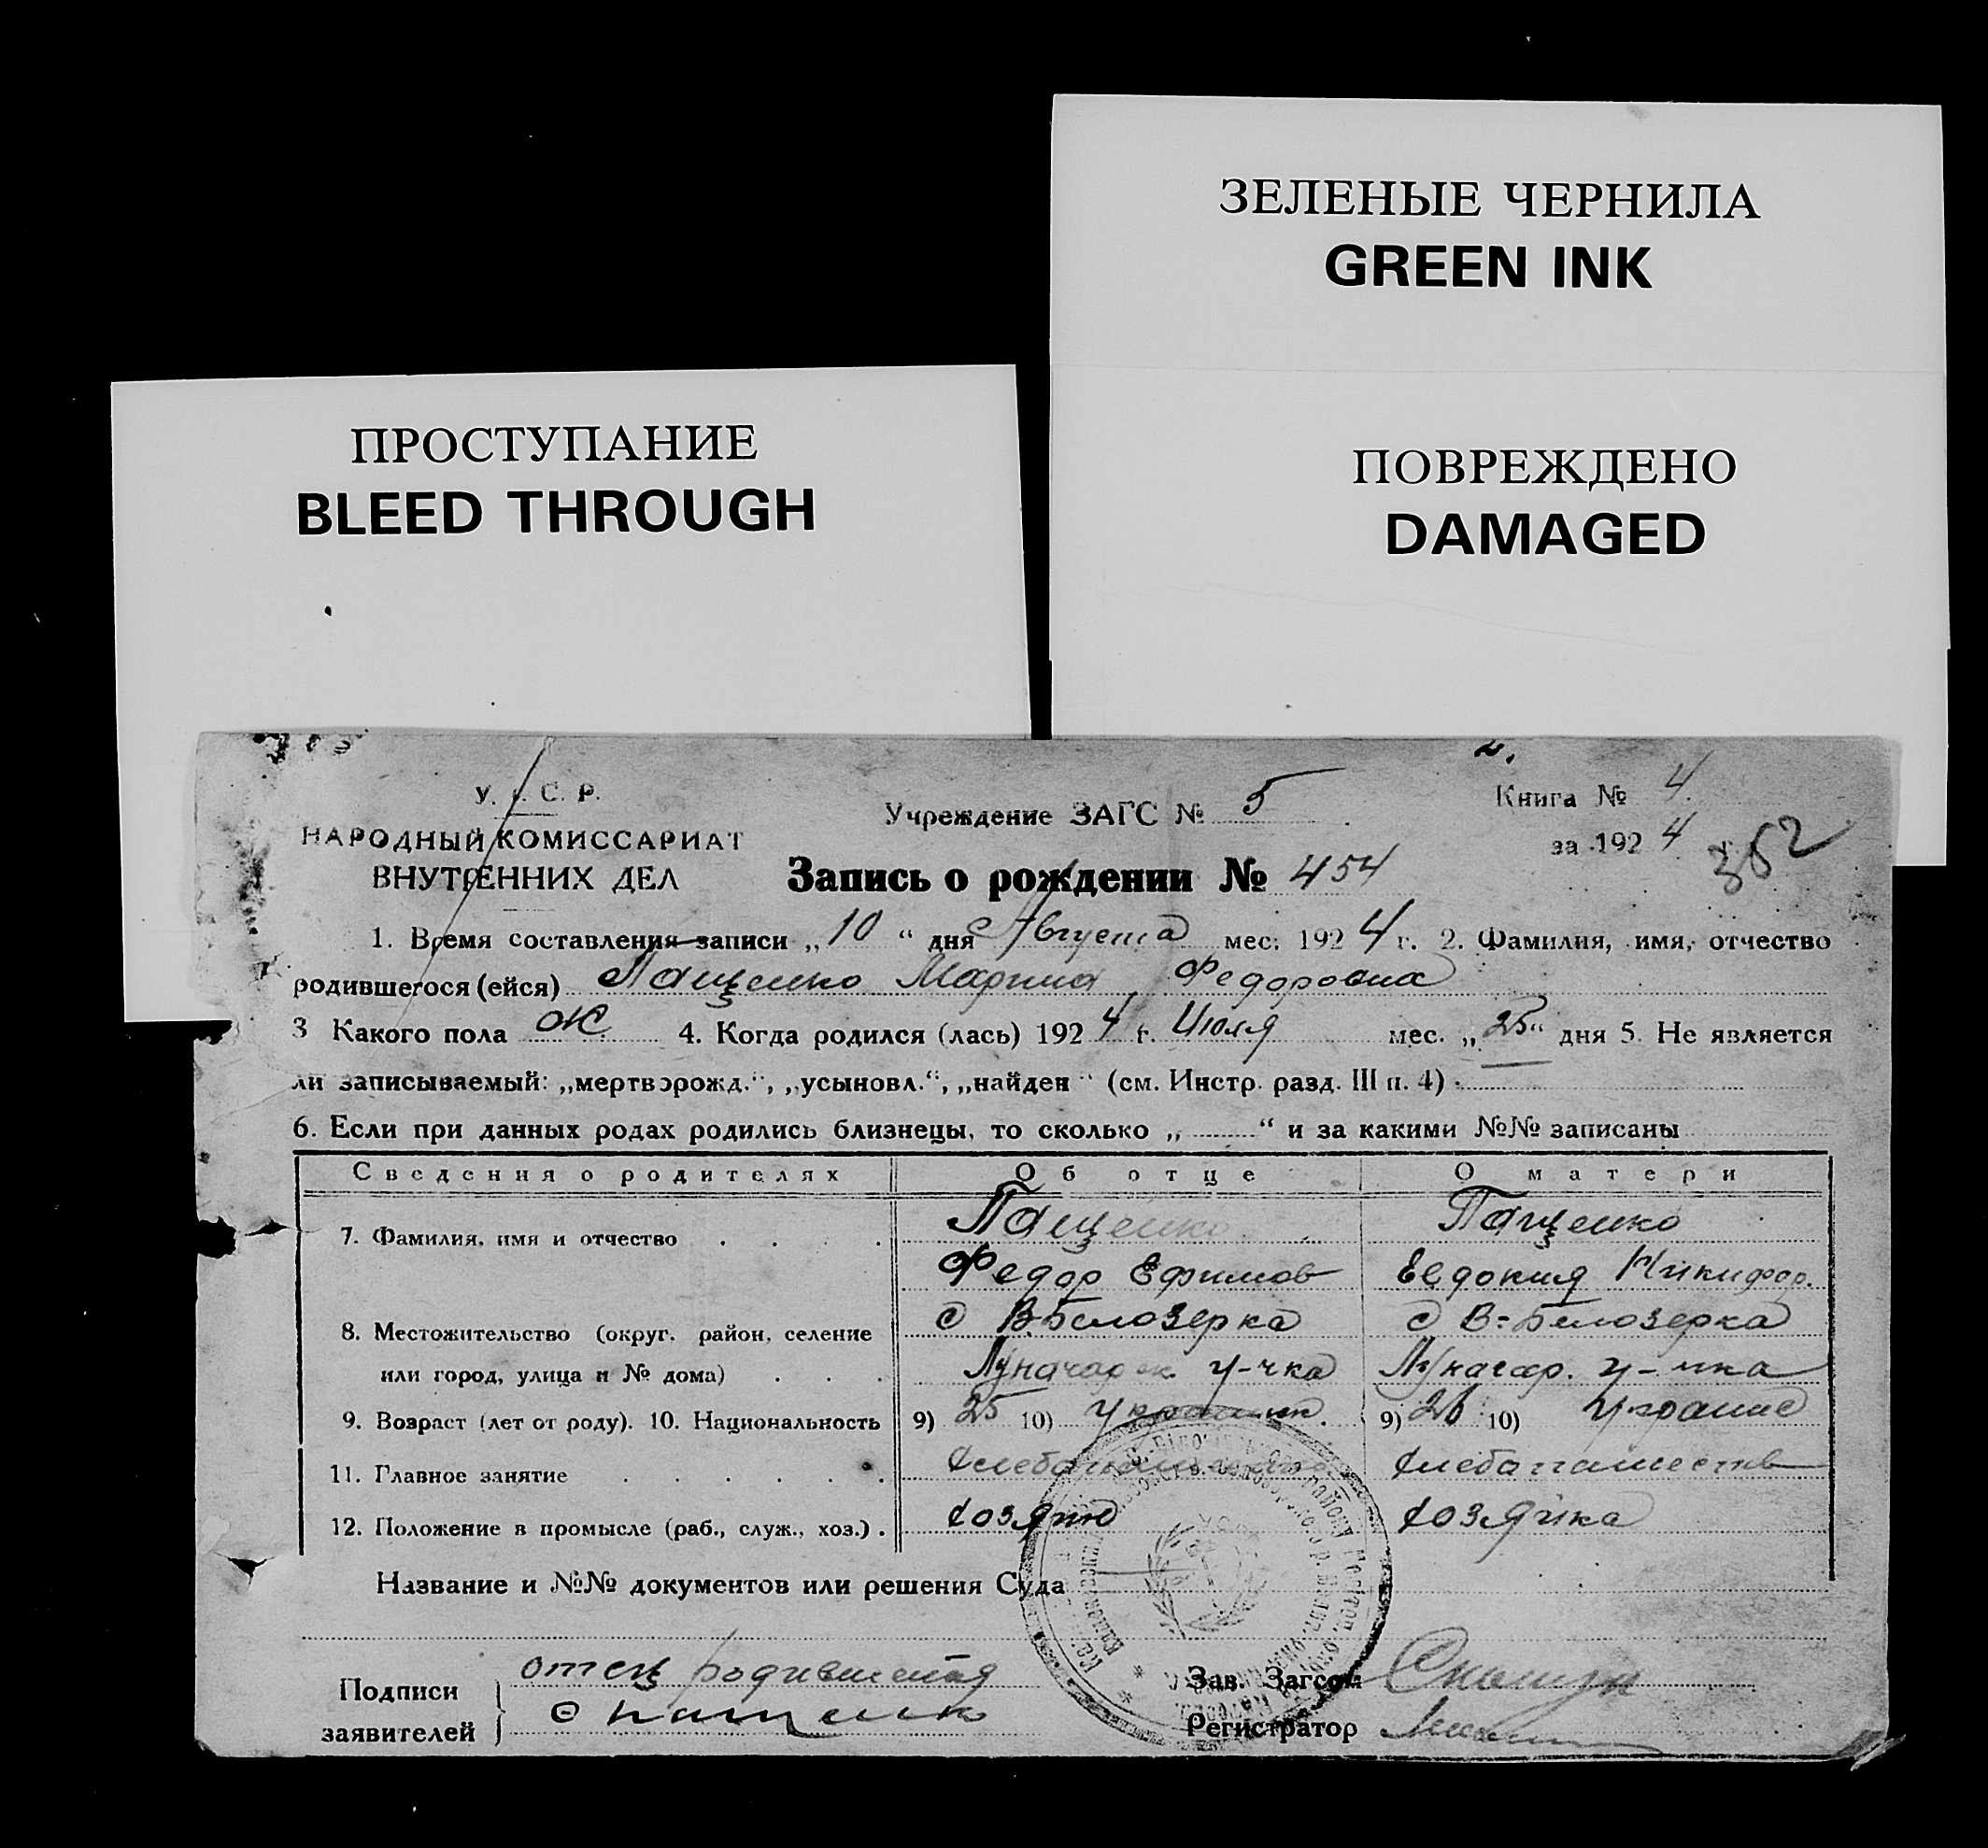 ЗЕЛЕНЫЕ ЧЕРНИЛА
GREEN INK
ПРОСТУПАНИЕ
BLEED THROUGH
ПОВРЕЖДЕНО
DAMAGED
У. С. С. Р.
НАРОДНЫЙ КОМИССАРИАТ
ВНУТРЕННИХ ДЕЛ
Учреждение ЗАГС № 5
Книга № 4
за 1924 г.
352
Запись о рождении № 454
1. Время составления записи „10“ дня Августа мес. 1924 г. 2. Фамилия, имя, отчество
родившегося (ейся) Пащенко Марина Федоровна
3 Какого пола ж. 4. Когда родился (лась) 1924 г. Июля мес. „25“ дня 5. Не является
ли записываемый: „мертворожд.“, „усыновл.“, „найден“ (см. Инстр. разд. III п. 4)
6. Если при данных родах родились близнецы, то сколько „ “ и за какими №№ записаны
Сведения о родителях Об отце О матери
7. Фамилия, имя и отчество Пащенко Пащенко
Федор Ефимов Евдокия Никифор.
8. Местожительство (округ, район, селение с В-Белозерка с В-Белозерка
или город, улица и № дома) Луначарск. у-чка Луначар. у-чка
9. Возраст (лет от роду). 10. Национальность 9) 25 10) украин. 9) 26 10) украине
11. Главное занятие Хлебопашество Хлебопашеств
12. Положение в промысле (раб., служ., хоз.) хозяин хозяйка
Название и №№ документов или решения Суда
Подписи заявителей
отец родившейся
Пащенко
Зав. Загсом
Регистратор